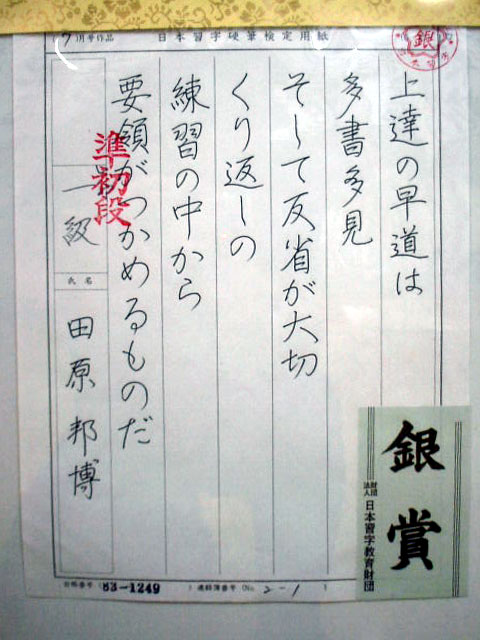 (7月号作品
日本習字硬筆検定用紙
銀
上達の早道は
多書多見
そして反省が大切
くり返しの
練習の中から
要領がつかめるものだ
準初段
一級
氏名
田原邦博
銀賞
財団法人 日本習字教育財団
83-1249
) 連絡簿番号 (No. 2-1 )